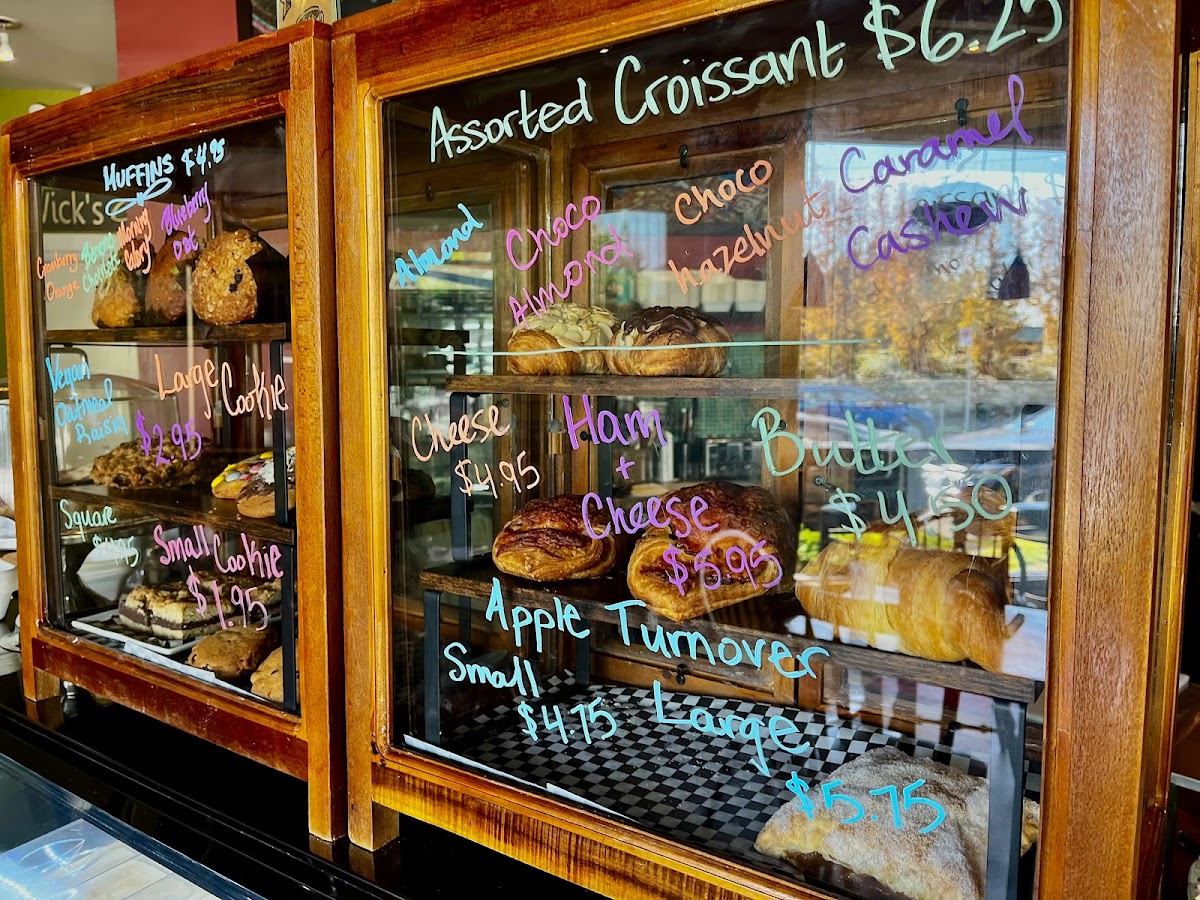 MUFFINS $4.95
Vick's
Cranberry
Orange
Banana
Chocolate
Morning
Glory
Blueberry
Oat
Vegan
Oatmeal
Raisin
Large Cookie
$2.95
Square
Small Cookie
$1.95
Assorted Croissant $6.25
Almond
Choco
Almond
Choco
hazelnut
Caramel
Cashew
Cheese
$4.95
Ham
+
Cheese
$5.95
Butter
$4.50
Apple Turnover
Small
$4.75
Large
$5.75